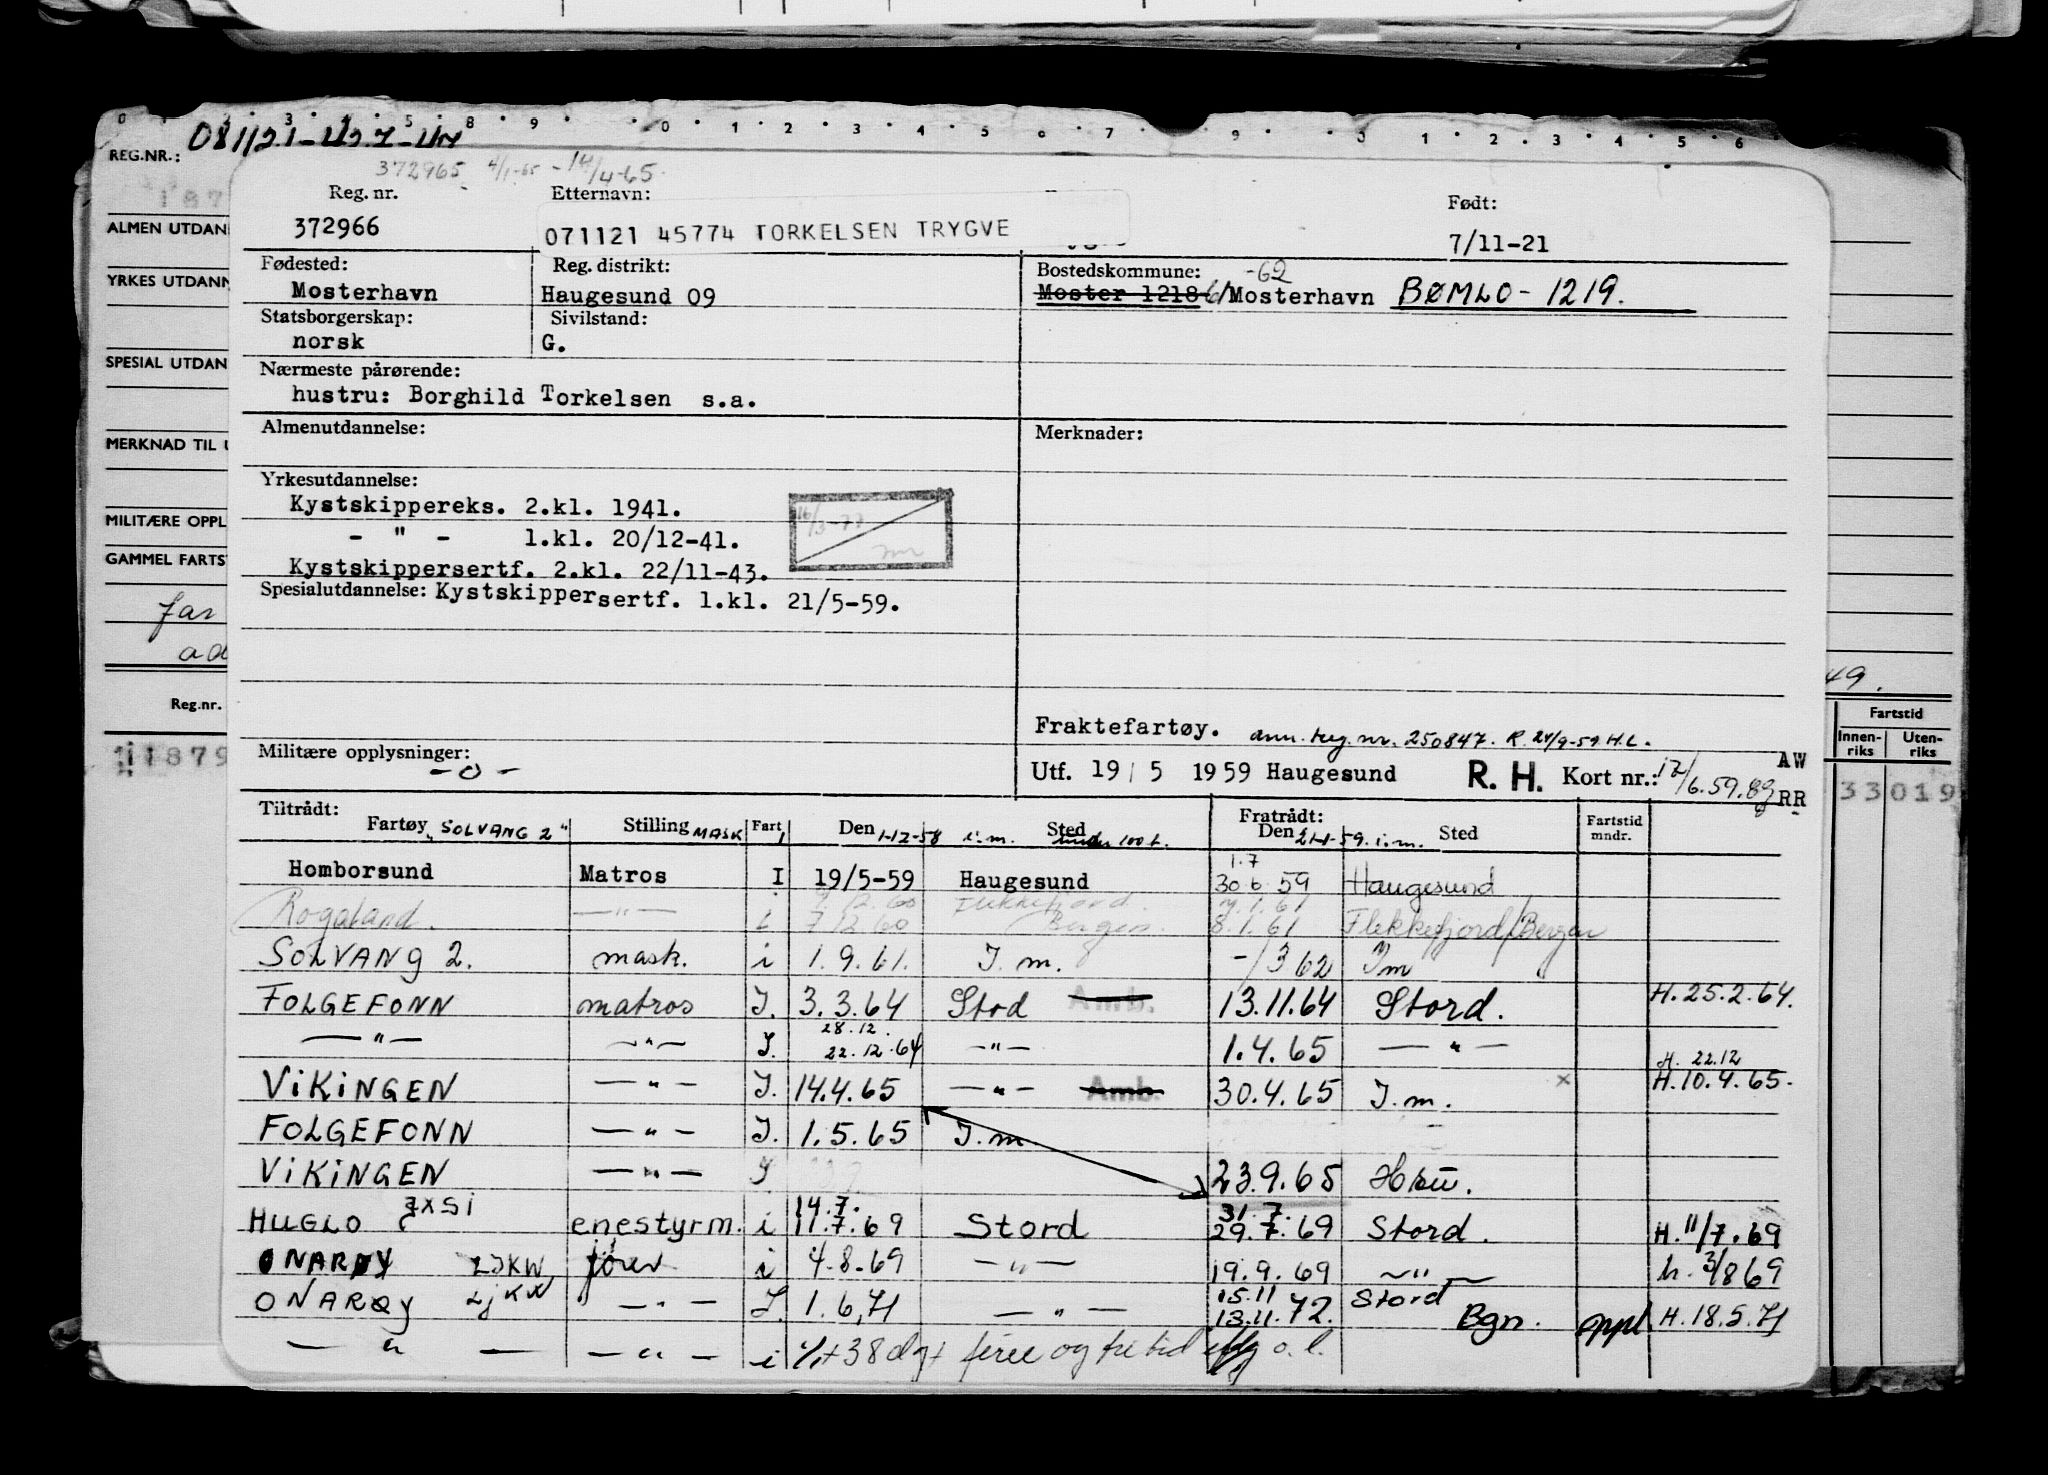 REG.NR.:
372965 4/1-65 - 14/4-65.
Reg. nr. Etternavn: Født:
372966 071121 45774 TORKELSEN TRYGVE 7/11-21
ALMEN UTDAN
Fødested: Reg. distrikt: Bostedskommune: -62
YRKES UTDANN
Mosterhavn Haugesund 09 Moster 1218 Mosterhavn BØMLO - 1219.
Statsborgerskap: Sivilstand:
norsk G.
SPESIAL UTDAN
Nærmeste pårørende:
hustru: Borghild Torkelsen s.a.
Almenutdannelse: Merknader:
MERKNAD TIL U
Yrkesutdannelse:
Kystskippereks. 2.kl. 1941.
- " - 1.kl. 20/12-41.
16/3-77
MILITÆRE OPPL
GAMMEL FARTS
Kystskippersertf. 2.kl. 22/11-43.
Spesialutdannelse: Kystskippersertf. 1.kl. 21/5-59.
49.
Reg.nr.
Fartstid
Innen-riks Uten-riks
Fraktefartøy. ann. reg. nr. 250847. R. 24/9-59 H.L.
11879
33019
Militære opplysninger: Utf. 19/5 1959 Haugesund R. H. Kort nr.: 12/6.59.89 AW
- o - RR
Tiltrådt: Fratrådt: Fartstid mndr.
Fartøy "SOLVANG 2" Stilling MASK Fart I Den 1-12-58 i.m. Sted under 100 t. Den 21-1-59. i.m. Sted
1.7
Homborsund Matros I 19/5-59 Haugesund 30.6.59 Haugesund
Rogaland. -"- i 7.12.60 Flekkefjord. Bergen. 8.1.61 Flekkefjord/Bergen
SOLVANG 2. mask. i 1.9.61. I.m. -/3 62 Im
FOLGEFONN matros I. 3.3.64 Stod Amb. 13.11.64 Stord. H.25.2.64.
28.12.
-"- -"- I. 22.12.64 -"- 1.4.65 -"- H. 22.12
VIKINGEN -"- I. 14.4.65 -"- Amb. 30.4.65 I.m. x H.10.4.65.
FOLGEFONN -"- I. 1.5.65 I.m.
VIKINGEN -"- I 23.9.65
14.7. 31.7.
HUGLO enestyrm. i 11.7.69 Stord 29.7.69 Stord. H. 11/7.69
ONARØY LJKW fører i 4-8-69 -"- 19.9.69 -"- h. 3/8 69
15.11 Stord
ONARØY LJKW -"- I. 1.6.71 -"- 13.11.72. Bgn. oppl H.18.5.71
-"- -"- i 38 dg + ferie og fritid o.l.